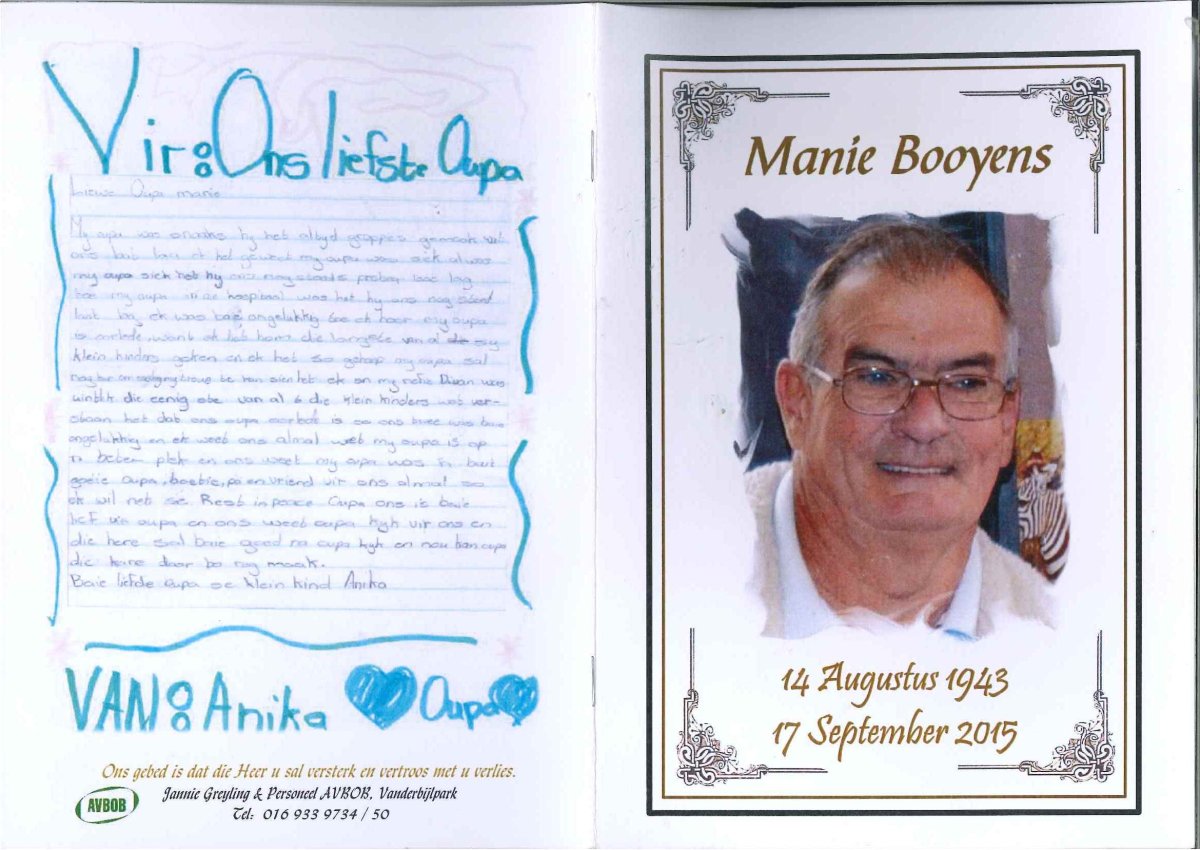 Vir: Ons liefste Oupa
Liewe Oupa manie
My oupa was snaaks hy het altyd grappies gemaak wat
ons laat
my oupa siek het hy ons nog steeds probeer laat lag
toe my oupa in die hospitaal was het hy ons nog steed
laat lag, ek was baie ongelukkig toe ek hoor my oupa
is oorlede, want ek het hom die langste van al sy
klein kinders geken en ek het so gehoop my oupa sal
nog by my troue te kan sien het ek en my nefie Divan was
die eenig ste van al 6 die klein kinders wat ver-
staan het dat ons oupa is so ons twee was baie
ongelukkig en ek weet ons almal weet my oupa is op
'n beter plek en ons weet my oupa was 'n baie
goeie oupa, boetie, pa en vriend vir ons almal so
ek wil net sê Rest in peace Oupa ons is baie
lief vir oupa en ons weet oupa kyk vir ons en
die here sal baie goed na oupa kyk en nou kan oupa
die here daar bo lag maak.
Baie liefde oupa se klein kind Anika
VAN: Anika Oupa
Ons gebed is dat die Heer u sal versterk en vertroos met u verlies.
AVBOB
Jannie Greyling & Personeel AVBOB, Vanderbijlpark
Tel: 016 933 9734 / 50
Manie Booyens
14 Augustus 1943
17 September 2015